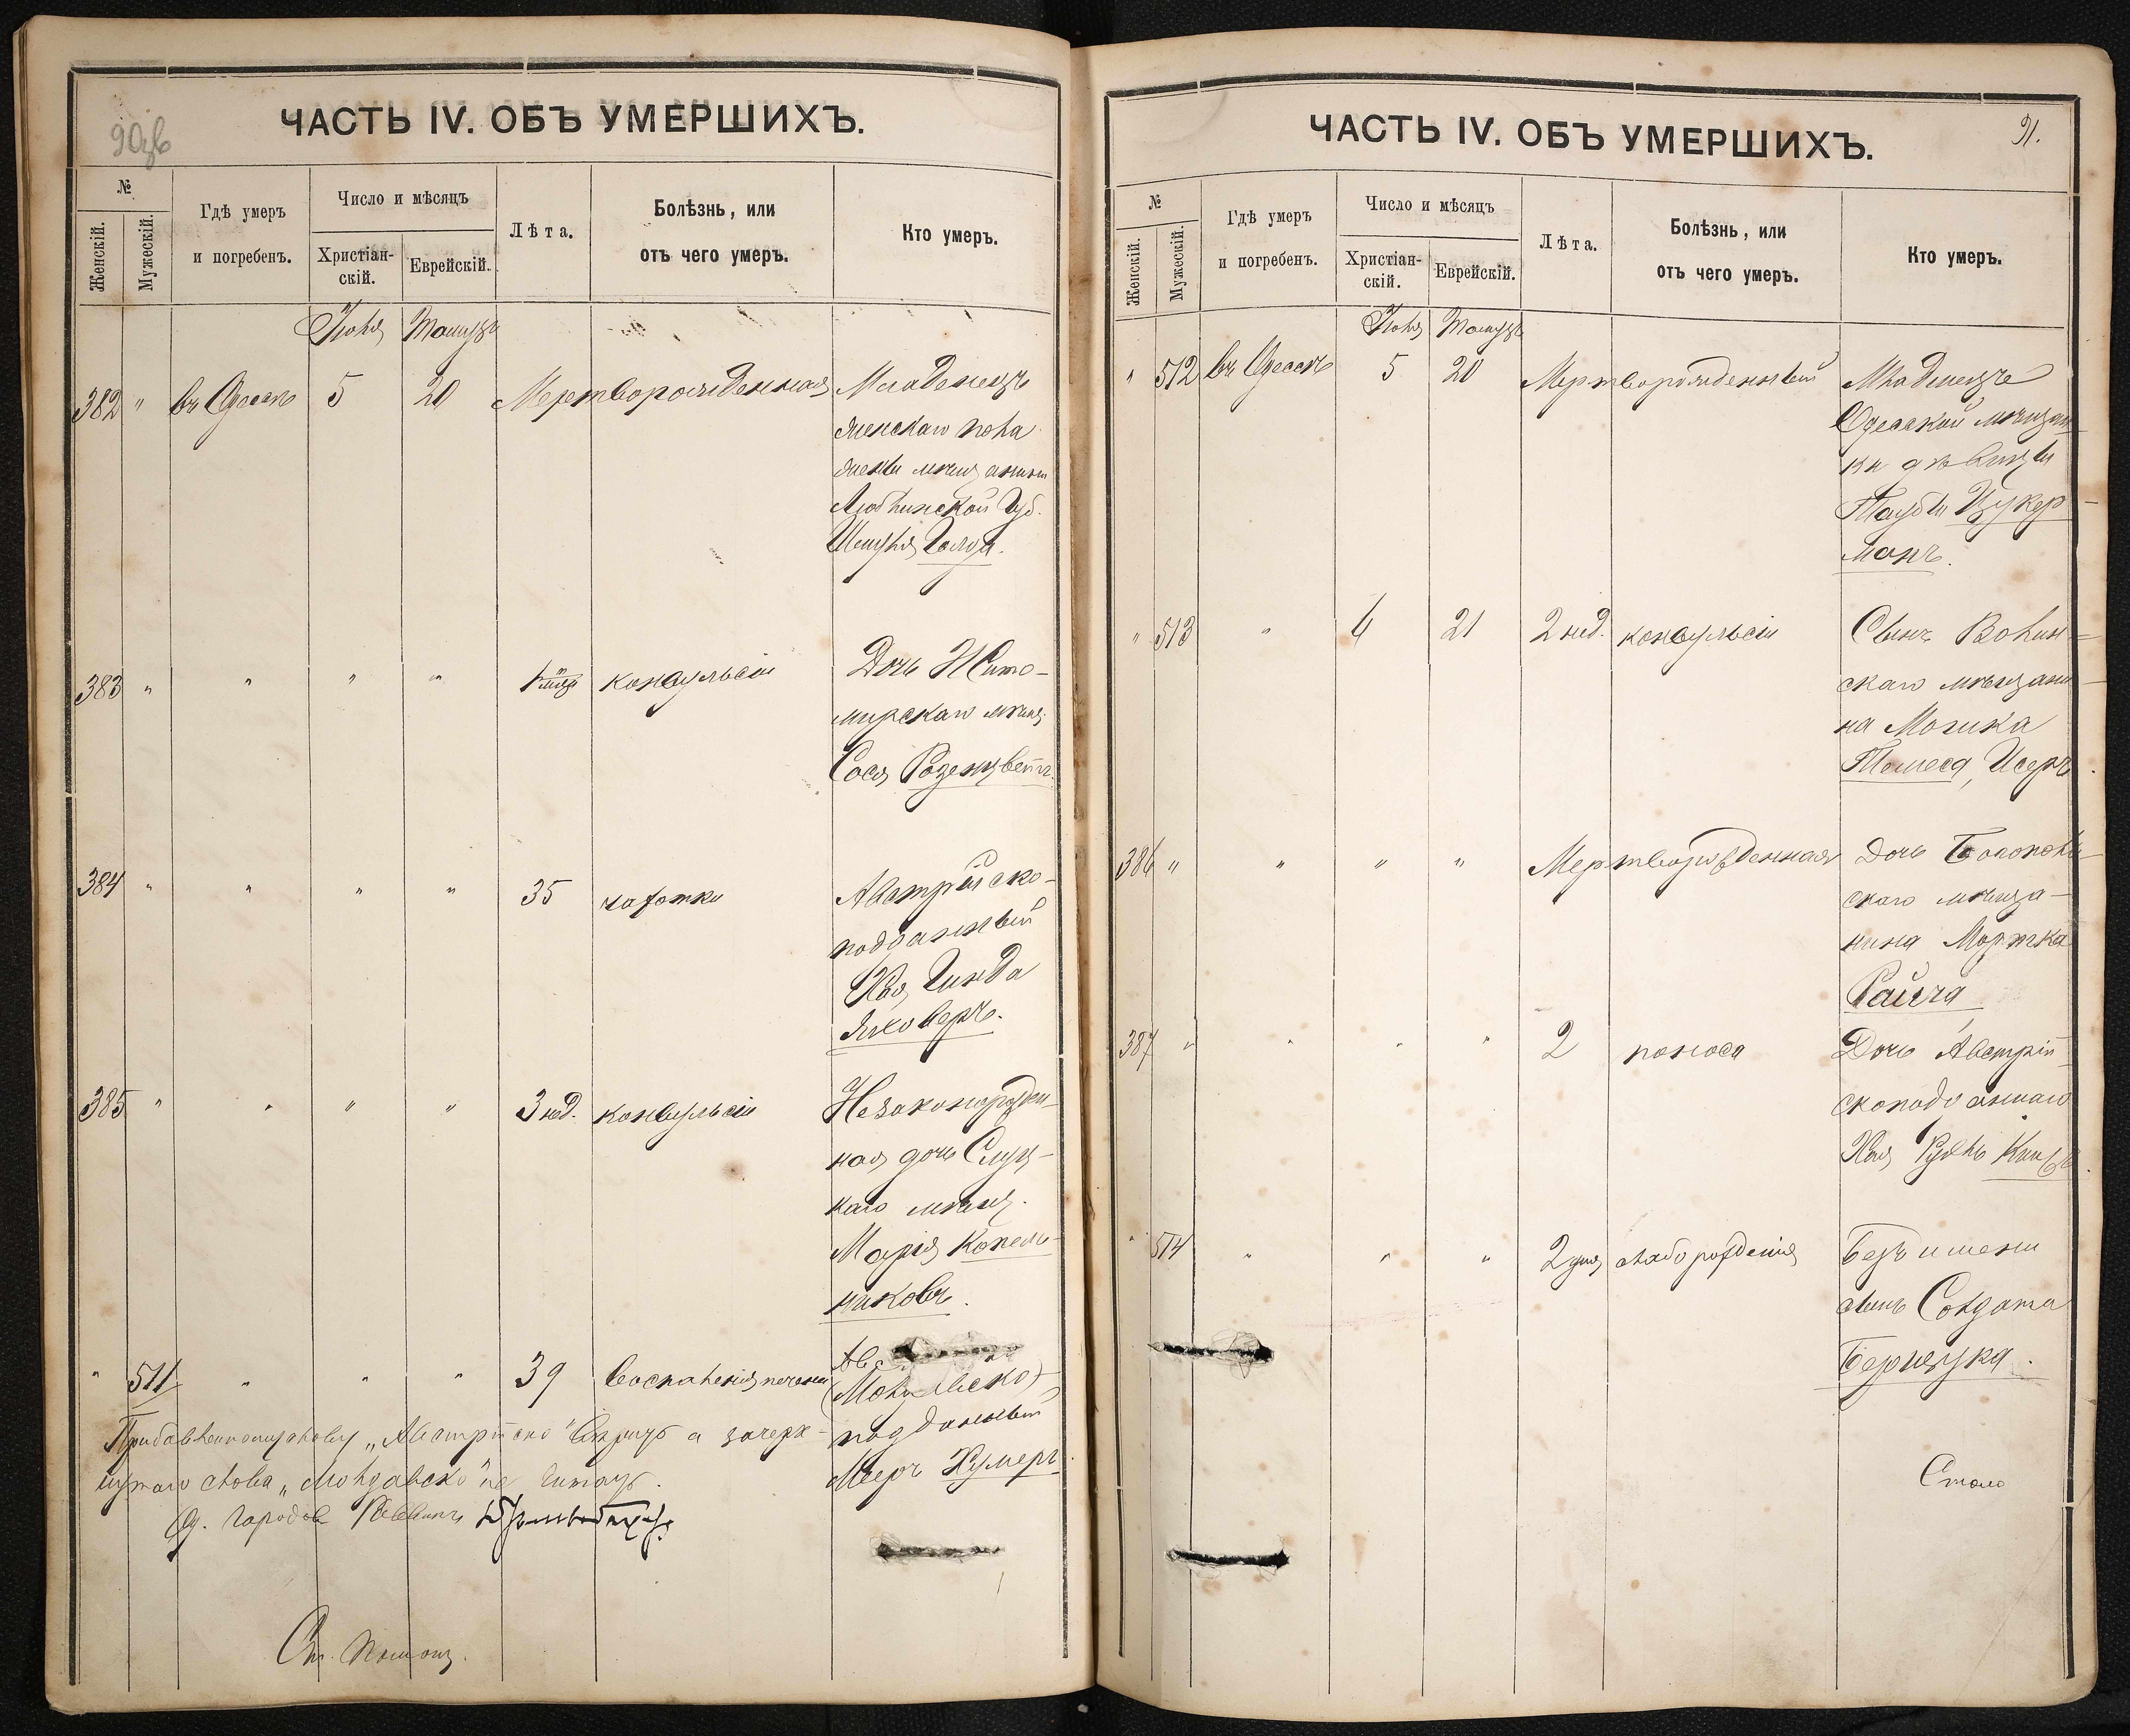 90
ЧАСТЬ IV. ОБЪ УМЕРШИХЪ.
№
Женскій.
Мужескій.
Гдѣ умеръ
и погребенъ.
Число и мѣсяцъ
Христіан-
скій.
Еврейскій.
Лѣта.
Болѣзнь, или
отъ чего умеръ.
Кто умеръ.
Іюля Тамузъ
382 " въ Одессѣ 5 20 Мертворожденная Младенецъ
женскаго пола
жены мѣщанина
Люблинской Губ.
383 " " " " конвульсіи Дочь Жито-
мирскаго мѣщ.
Сося Розенцветъ.
384 " " " " 35 чахотки Австрійско-
подданный
Хая Гинда
Яковеръ.
385 " " " " 3 нед. конвульсіи Незаконорожден-
ная дочь Слуц-
каго мѣщ.
Марія Копель-
никовъ.
" 511 " " " 39 воспаленія печени Авс
(Молдавско)
подданный
Мееръ Кумеръ.
Прибавленному слову „Австрійско" вѣрить а зачерк-
нутаго слова „Молдавско" не читать.
Од. Городов. Раввинъ
См. помощ.
91.
ЧАСТЬ IV. ОБЪ УМЕРШИХЪ.
№
Женскій.
Мужескій.
Гдѣ умеръ
и погребенъ.
Число и мѣсяцъ
Христіан-
скій.
Еврейскій.
Лѣта.
Болѣзнь, или
отъ чего умеръ.
Кто умеръ.
Іюля Тамузъ
" 512 въ Одессѣ 5 20 Мертворожденный Младенецъ
Одесской мѣщан-
ки дѣвицы
Таубы Цукер-
манъ.
" 513 " 6 21 2 нед. конвульсіи Сынъ Волин-
скаго мѣщани-
на Мошка
Исеръ.
386 " " " " Мертворожденная Дочь
скаго мѣща-
нина Мортка
Райга
387 " " " " 2 поноса Дочь Австрій-
скоподданнаго
Хая
" 514 " " " 2 дня слаборожденія Безъ имени
сынъ Солдата
Бернчука.
Стало